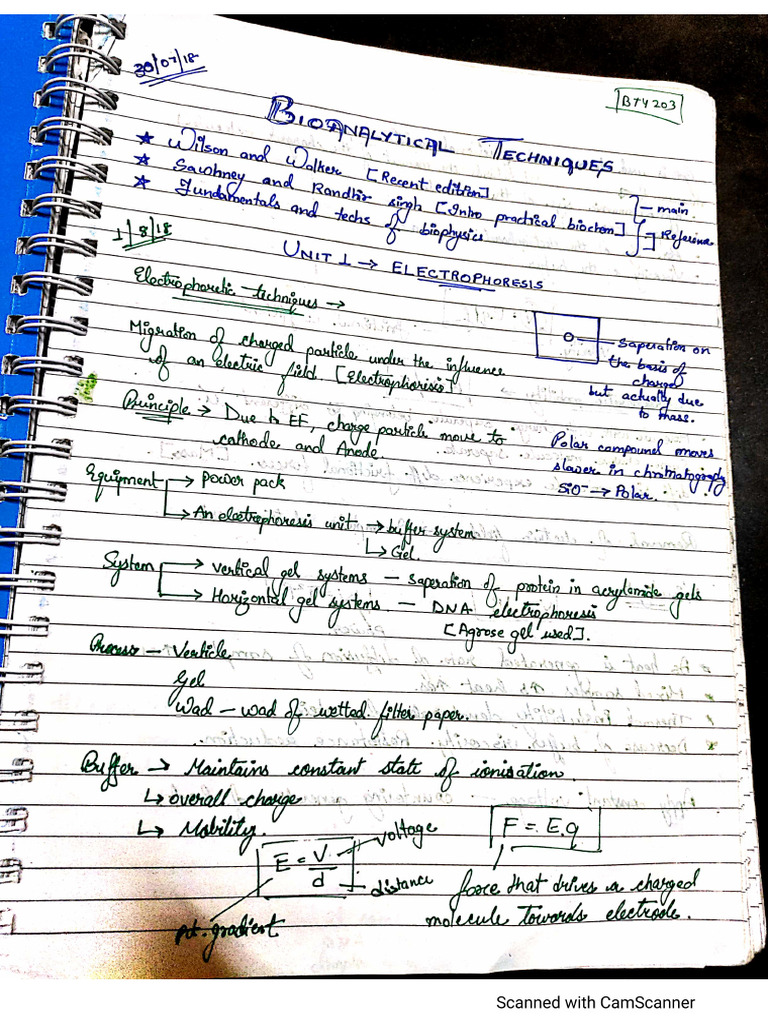 30/07/18
BTY203
BIOANALYTICAL TECHNIQUES
★ Wilson and Walker [Recent edition]
★ Sawhney and Randhir singh [Intro practical biochem]
★ Fundamentals and techs of biophysics
main
Reference
1/8/18
UNIT 1 → ELECTROPHORESIS
Electrophoretic techniques →
Migration of charged particle under the influence
of an electric field. [Electrophorisis].
Saperation on
the basis of
charged
but actually due
to mass.
Principle → Due to EF, charge particle move to
cathode and Anode.
Polar compound moves
slower in chromatography
SiO⁻ → Polar.
Equipment → power pack
→ An electrophoresis unit → buffer system
↳ Gel.
System → vertical gel systems – saperation of protein in acrylamide gels
→ Horizontal gel systems – DNA electrophoresis
[Agrose gel used].
Process – Verticle
Gel
Wad – wad of wetted filter paper.
Buffer → Maintains constant state of ionisation.
↳ overall charge
↳ Mobility.
E = V/d
voltage
distance
pot. gradient
F = E.q
force that drives a charged
molecule towards electrode.
Scanned with CamScanner